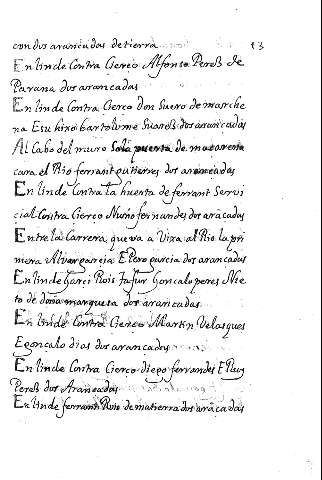 con dos arancadas de tierra 13
En linde Contra Cierço Alfonso Peres de
Parana dos arancadas
En linde Contra Cierço Don Suero de marche
na E su hiro bartolume Suares dos arancadas
Al Cabo del muro Sola puerta de macarena
cara el Rio ferrant gutierres dos arancadas
En linde Contra la huerta de ferrant Servi
cial Contra Cierço Nuño fernandes dos arãcadas
Entre la Carrera que va a Vixa al Rio la pri
mera Alvar garcia E Pero garcia dos arancadas
En linde Garci Rois Tafur Gonçalo peres Nie
to de doña marquesa dos arancadas
En linde Contra Cierço Martin Velasques
E gonçalo dias dos arancadas
En linde Contra Cierço diego ferrandes E Ruy
Peres dos Arancadas
En linde ferrant Rois de matierra dos arãcadas